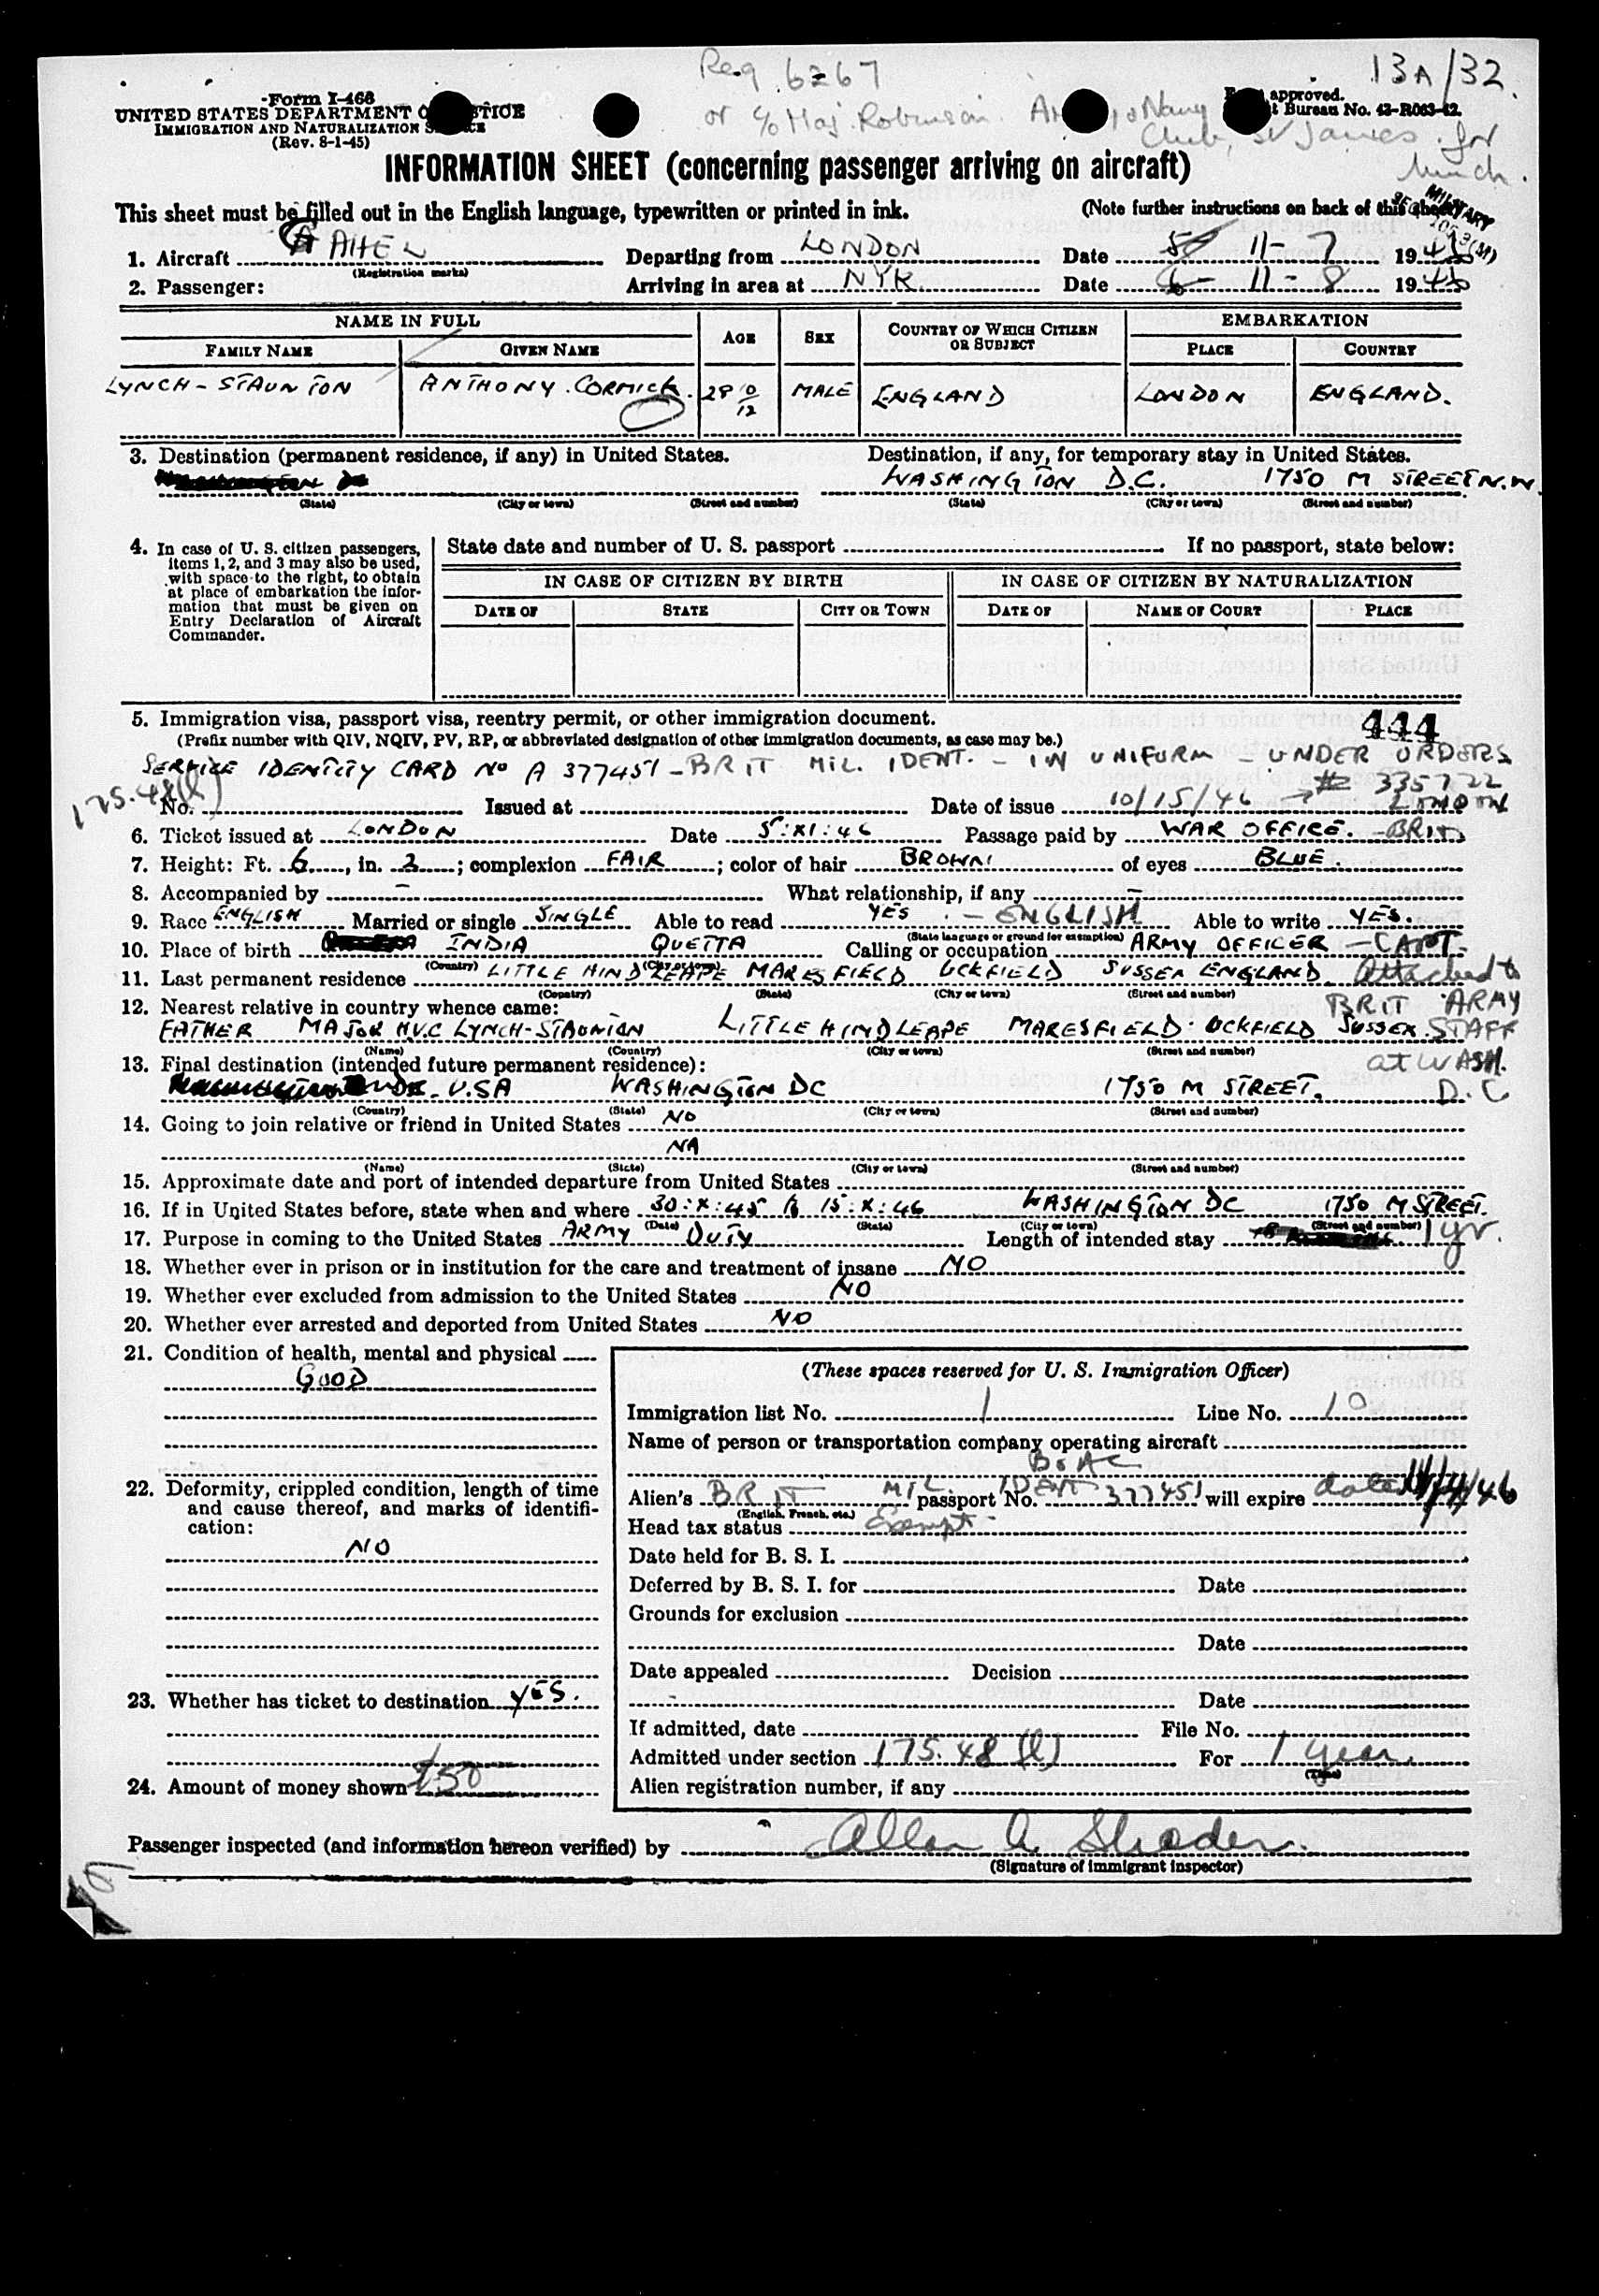 Req 6267
13A/32.
or c/o Maj. Robinson. Navy
Club, St James. for
lunch.
Form I-466
UNITED STATES DEPARTMENT OF JUSTICE
IMMIGRATION AND NATURALIZATION SERVICE
(Rev. 8-1-45)
approved.
Bureau No. 43-R063-42.
INFORMATION SHEET (concerning passenger arriving on aircraft)
This sheet must be filled out in the English language, typewritten or printed in ink. (Note further instructions on back of this sheet)
MILITARY
1. Aircraft G AHEL Departing from LONDON Date 11-7 1946
(Registration marks)
2. Passenger: Arriving in area at NYK Date 11-8 1946
NAME IN FULL AGE SEX COUNTRY OF WHICH CITIZEN OR SUBJECT EMBARKATION
FAMILY NAME GIVEN NAME PLACE COUNTRY
LYNCH-STAUNTON ANTHONY. CORMICK. 28 10/12 MALE ENGLAND LONDON ENGLAND.
3. Destination (permanent residence, if any) in United States. Destination, if any, for temporary stay in United States.
WASHINGTON D.C. 1750 M STREET N.W.
(State) (City or town) (Street and number) (State) (City or town) (Street and number)
4. In case of U. S. citizen passengers, items 1, 2, and 3 may also be used, with space to the right, to obtain at place of embarkation the information that must be given on Entry Declaration of Aircraft Commander.
State date and number of U. S. passport If no passport, state below:
IN CASE OF CITIZEN BY BIRTH IN CASE OF CITIZEN BY NATURALIZATION
DATE OF STATE CITY OR TOWN DATE OF NAME OF COURT PLACE
5. Immigration visa, passport visa, reentry permit, or other immigration document. 444
(Prefix number with QIV, NQIV, PV, RP, or abbreviated designation of other immigration documents, as case may be.)
SERVICE IDENTITY CARD No A 377451 - BRIT MIL. IDENT. - IN UNIFORM - UNDER ORDERS
175.48(l) # 335722
No. Issued at Date of issue 10/15/46 LONDON
6. Ticket issued at LONDON Date 5:XI:46 Passage paid by WAR OFFICE. - BRIT
7. Height: Ft. 6, in. 2; complexion FAIR; color of hair BROWN of eyes BLUE.
8. Accompanied by - What relationship, if any -
9. Race ENGLISH Married or single SINGLE Able to read YES. - ENGLISH Able to write YES.
(State language or ground for exemption)
10. Place of birth INDIA QUETTA Calling or occupation ARMY OFFICER - CAPT.
(Country) (City or town)
11. Last permanent residence LITTLE HINDLEAPE MARESFIELD UCKFIELD SUSSEX ENGLAND Attached to
(Country) (State) (City or town) (Street and number)
12. Nearest relative in country whence came: BRIT ARMY
FATHER MAJOR H.V.C LYNCH-STAUNTON LITTLE HINDLEAPE MARESFIELD. UCKFIELD SUSSEX STAFF
(Name) (Country) (City or town) (Street and number)
13. Final destination (intended future permanent residence): at WASH.
U.S.A WASHINGTON DC 1750 M STREET. D.C
(Country) (State) (City or town) (Street and number)
14. Going to join relative or friend in United States NO
NA
(Name) (State) (City or town) (Street and number)
15. Approximate date and port of intended departure from United States
16. If in United States before, state when and where 30:X:45 to 15:X:46 WASHINGTON DC 1750 M STREET.
(Date) (State) (City or town) (Street and number)
17. Purpose in coming to the United States ARMY DUTY Length of intended stay 1 yr.
18. Whether ever in prison or in institution for the care and treatment of insane NO
19. Whether ever excluded from admission to the United States NO
20. Whether ever arrested and deported from United States NO
21. Condition of health, mental and physical
GOOD
22. Deformity, crippled condition, length of time and cause thereof, and marks of identification:
NO
23. Whether has ticket to destination YES.
24. Amount of money shown $50
(These spaces reserved for U. S. Immigration Officer)
Immigration list No. 1 Line No. 10
Name of person or transportation company operating aircraft
BOAC
Alien's BRIT MIL. IDENT passport No. 377451 will expire dated /46
(English, French, etc.)
Head tax status Exempt
Date held for B. S. I.
Deferred by B. S. I. for Date
Grounds for exclusion
Date
Date appealed Decision
Date
If admitted, date File No.
Admitted under section 175.48 (l) For 1 year.
(Time)
Alien registration number, if any
Passenger inspected (and information hereon verified) by Allen A Shader.
(Signature of immigrant inspector)